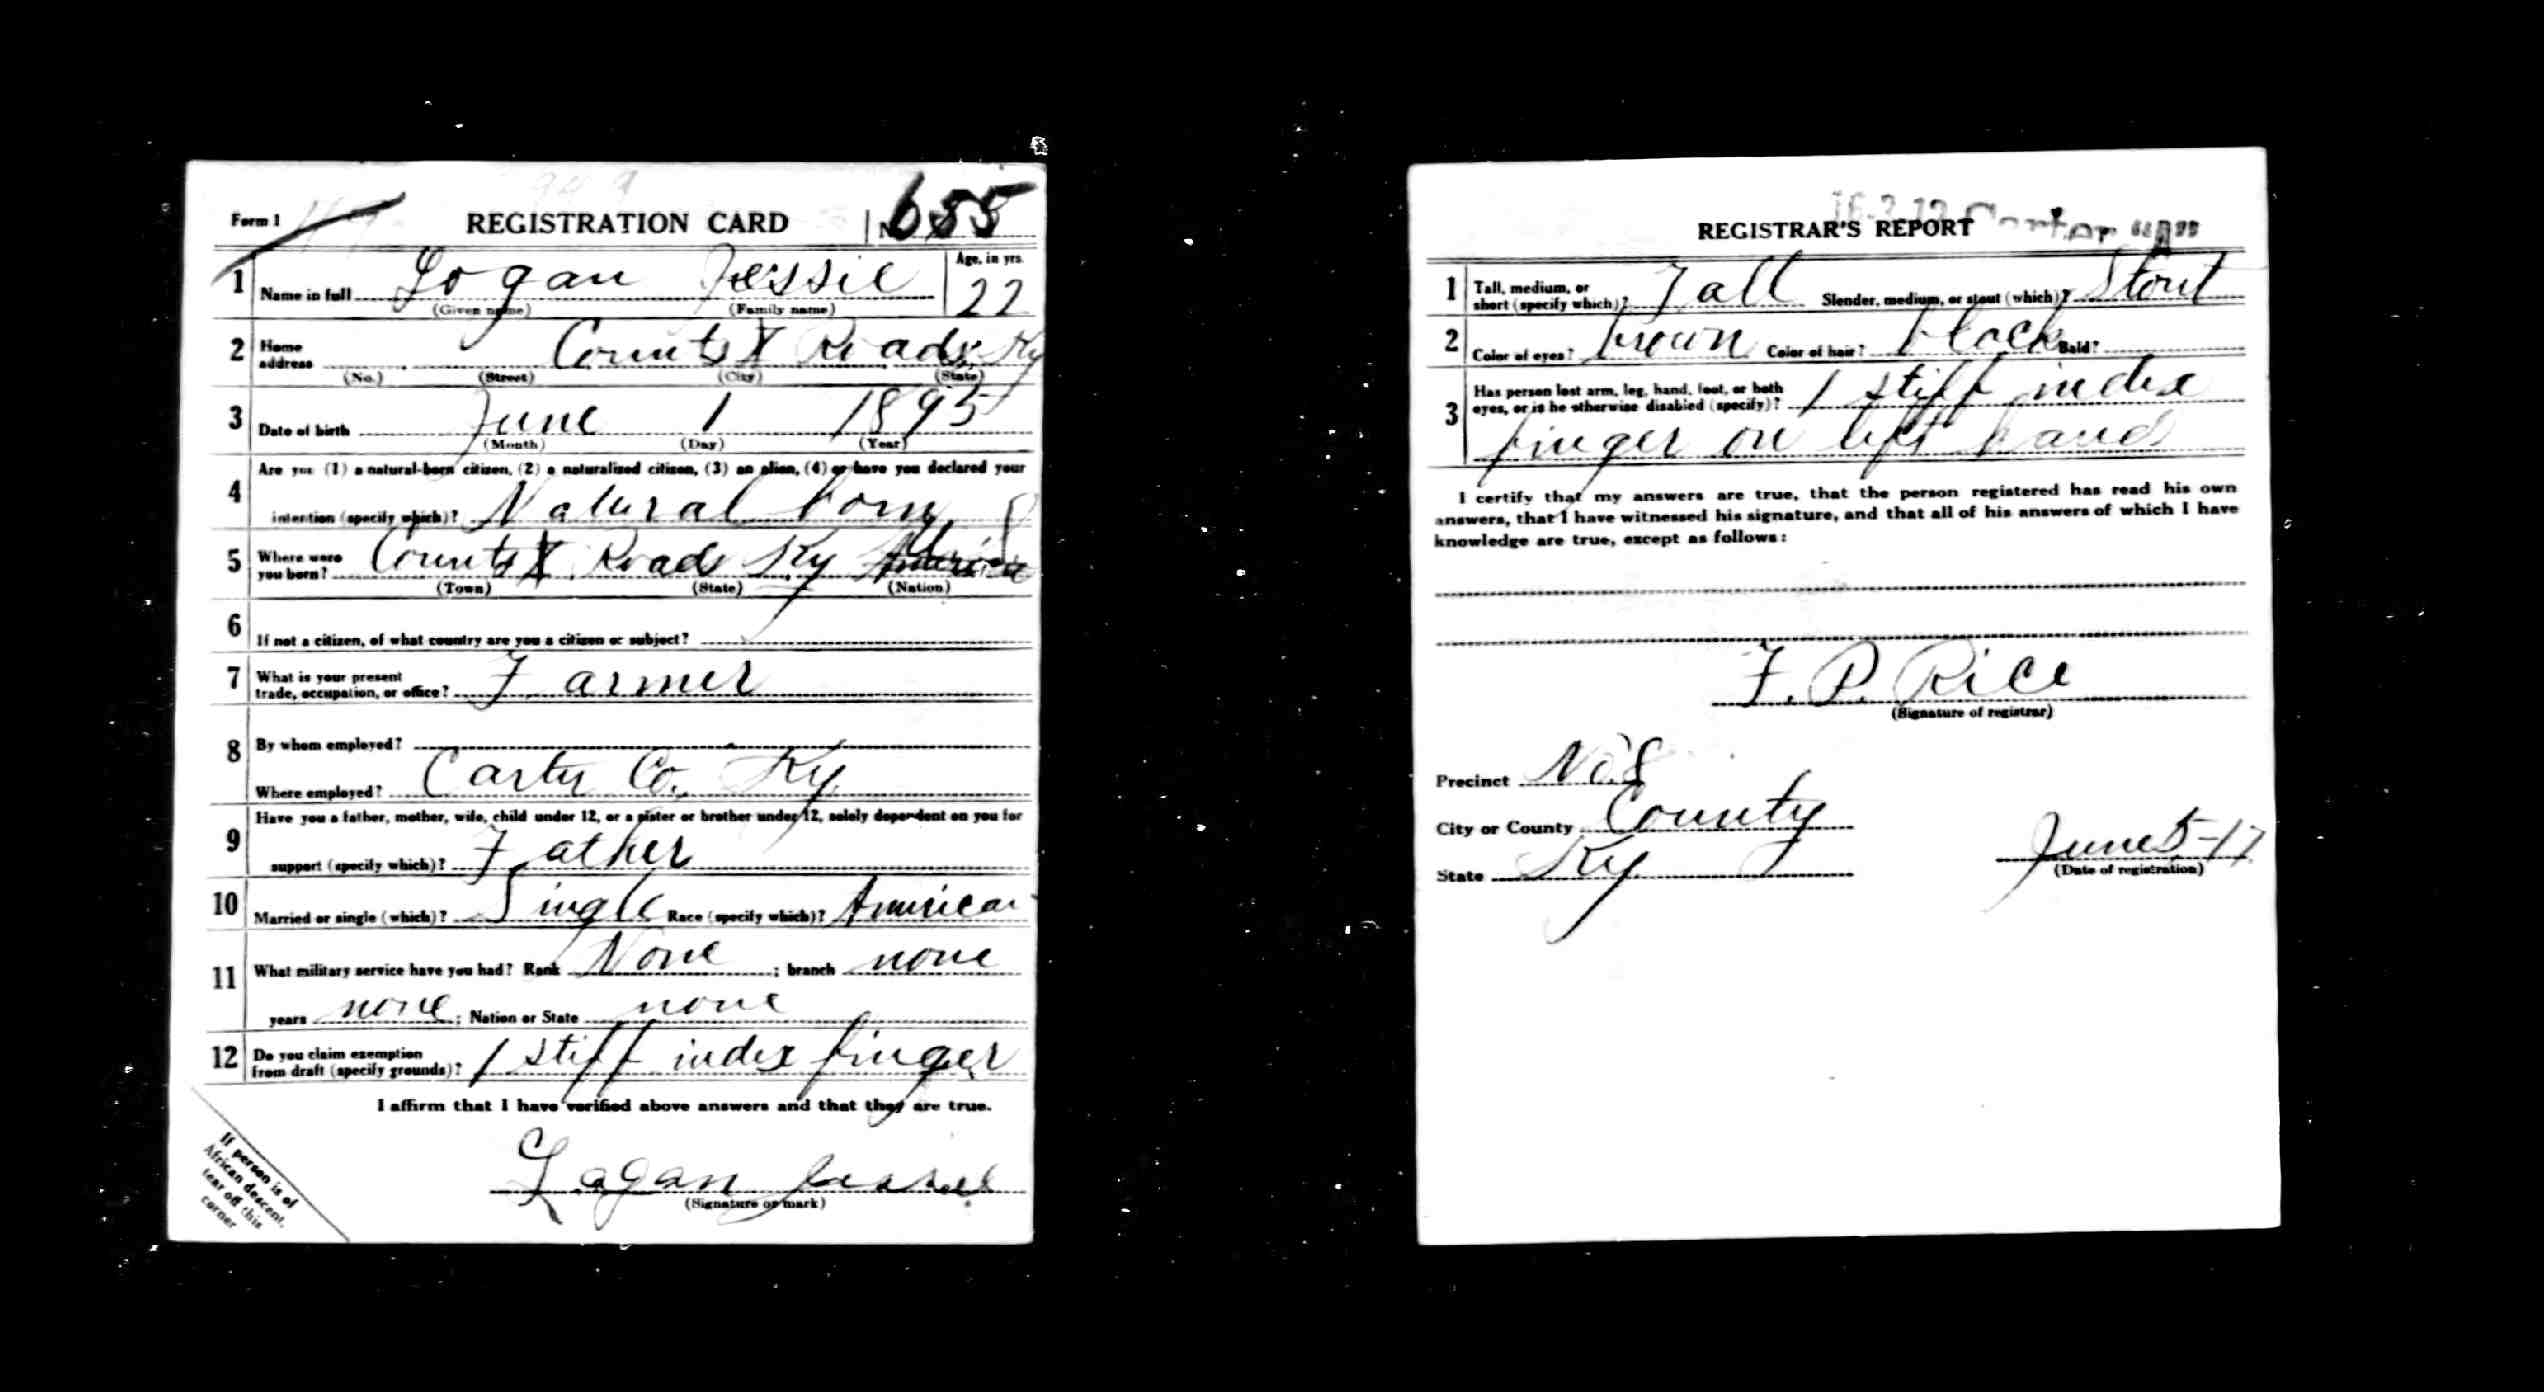 Form 1 REGISTRATION CARD 655
1 Name in full Logan Jessie Age, in yrs. 22
(Given name) (Family name)
2 Home address Counts X Roads, Ky
(No.) (Street) (City) (State)
3 Date of birth June 1 1895
(Month) (Day) (Year)
4 Are you (1) a natural-born citizen, (2) a naturalized citizen, (3) an alien, (4) or have you declared your
intention (specify which)? Natural born
5 Where were you born? Counts X Roads Ky
(Town) (State) (Nation)
6 If not a citizen, of what country are you a citizen or subject?
7 What is your present trade, occupation, or office? Farmer
8 By whom employed?
Where employed? Carter Co. Ky
9 Have you a father, mother, wife, child under 12, or a sister or brother under 12, solely dependent on you for
support (specify which)? Father
10 Married or single (which)? Single Race (specify which)? American
11 What military service have you had? Rank None ; branch none
years none ; Nation or State none
12 Do you claim exemption from draft (specify grounds)? 1 stiff index finger
I affirm that I have verified above answers and that they are true.
Logan Jessie
(Signature or mark)
If person is of
African descent,
tear off this
corner
REGISTRAR'S REPORT
1 Tall, medium, or short (specify which)? Tall Slender, medium, or stout (which)? Stout
2 Color of eyes? brown Color of hair? black Bald?
3 Has person lost arm, leg, hand, foot, or both eyes, or is he otherwise disabled (specify)? 1 stiff index
finger on left hand
I certify that my answers are true, that the person registered has read his own
answers, that I have witnessed his signature, and that all of his answers of which I have
knowledge are true, except as follows:
F. P. Rice
(Signature of registrar)
Precinct No. 8
City or County County
State Ky June 5-17
(Date of registration)